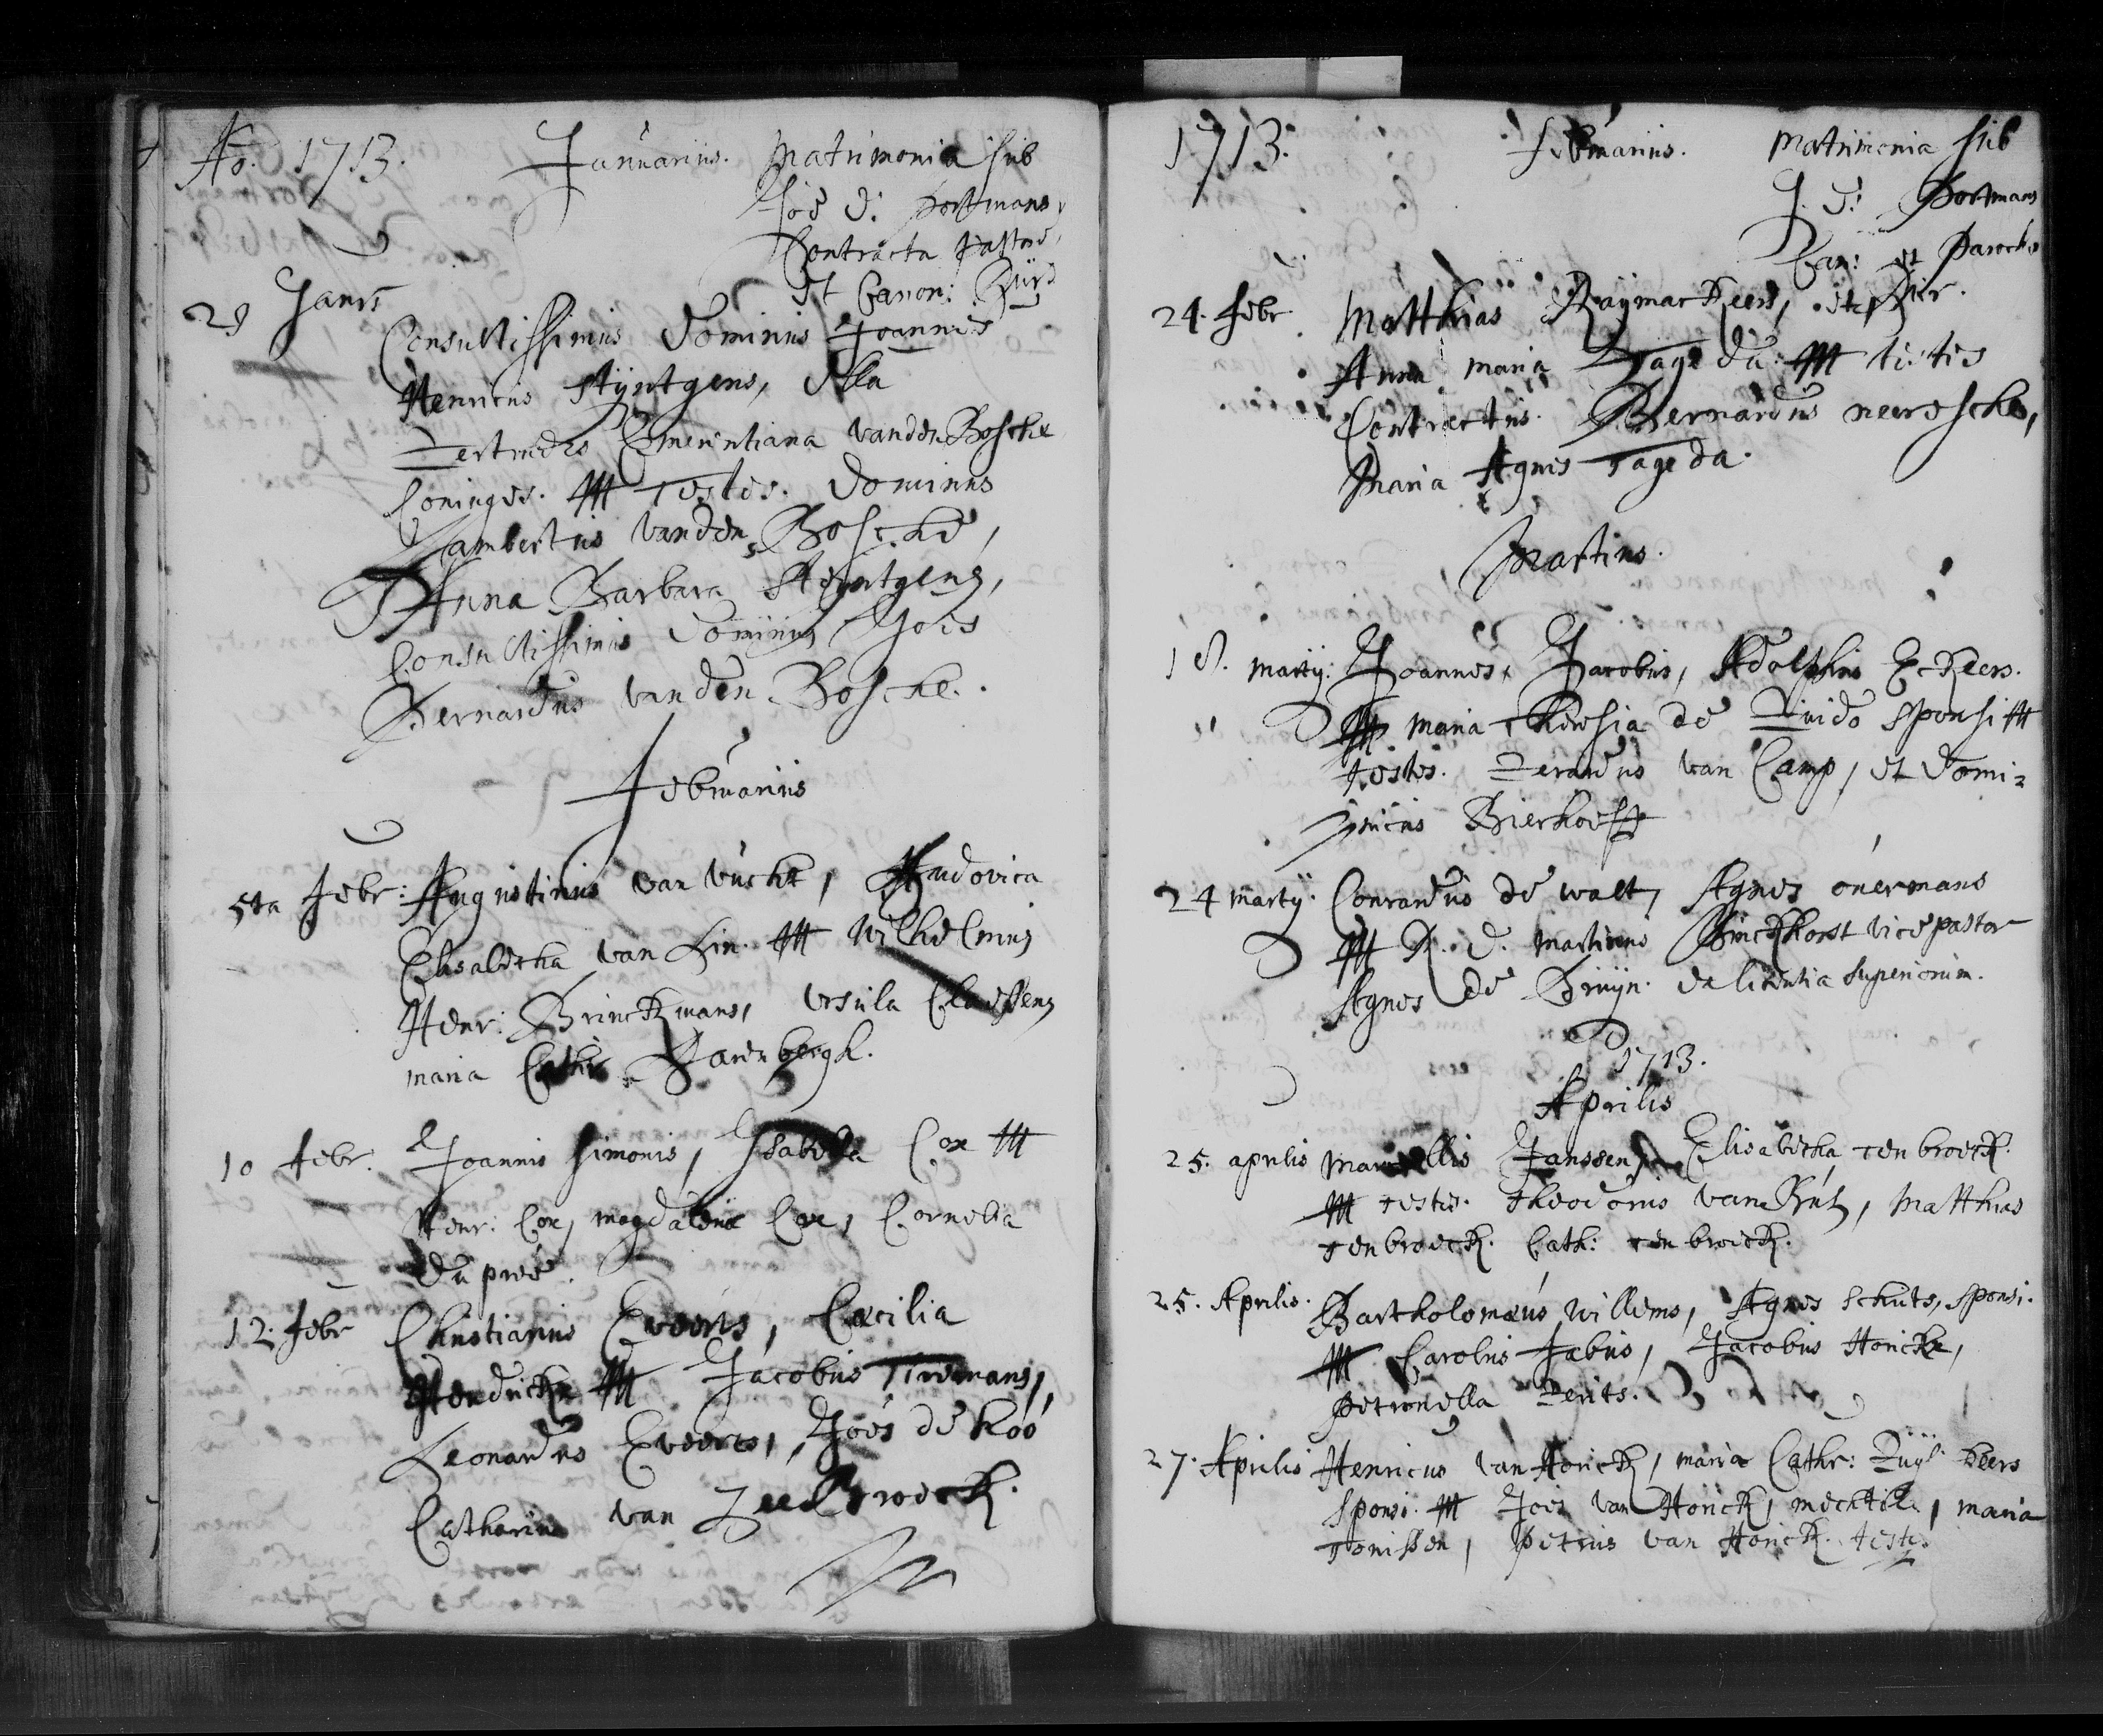 Ao. 1713. Januarius. Matrimonia sub
Joe d: Portmans
Contracta Pastore,
et Canon: Rur:
29 Janrs
Consultissimus Dominus Joannes
Henricus Stijntgens, Dlla
Gertrudes Emerentiana vanden Bosche
Coniuges. Testes. Dominus
Lambertus vanden Bosche,
Anna Barbara Steijntgens,
Consultissimus Dominus Joes
Bernardus vanden Bosche.
Februarius
5ta Febr: Augustinus van Vucht, Ludovica
Elisabetha van Lin. Wilhelmus
Henr: Brinckmans, Ursula Claessens
Maria Cathr.
10 Febr. Joannes Simonis, Isabella Cox
Henr: Cox, Magdalena Cox, Cornelia
du preé.
12. Febr Christianus Eveerts, Cæcilia
Hendrickx Jacobus Tiremans,
Leonardus Eveerts, Joes de Roo
Catharina van Zeelbroeck.
1713. Februarius. Matrimonia sub
J. d: Portmans
Can: et Parocho
Rur.
24. Febr. Matthias Raijmackeers, et
Anna Maria Tageda: testes
Contractus. Bernardus neeresche,
Maria Agnes Tageda.
Martius.
18. Martij: Joannes, Jacobus, Adolphus Eckeers.
Maria Theresia de Guido Sponsi
testes. Gerardus van Camp, et Domi=
nicus Bierhoefft
24 Martij. Conrardus de Walt, Agnes Overmans
R. d. Martinus Binckhorst vicepastor
Agnes de Bruijn. de licentia Superiorum.
1713.
Aprilis
25. aprilis Marcellis Janssen, Elisabetha ten broeck.
testes. Theodorus van Rut, Matthias
ten broeck. Cath: ten broeck.
25. Aprilis. Bartholomæus Willems, Agnes Schuts, Sponsi.
Carolus Fabus, Jacobus Honickx,
Petronella Gerits.
27. Aprilis Henricus van Horick, Maria Cathr:
Sponsi. Joes van Horick, Mechtil, Maria
Tonissen, Petrus van Horick. testes